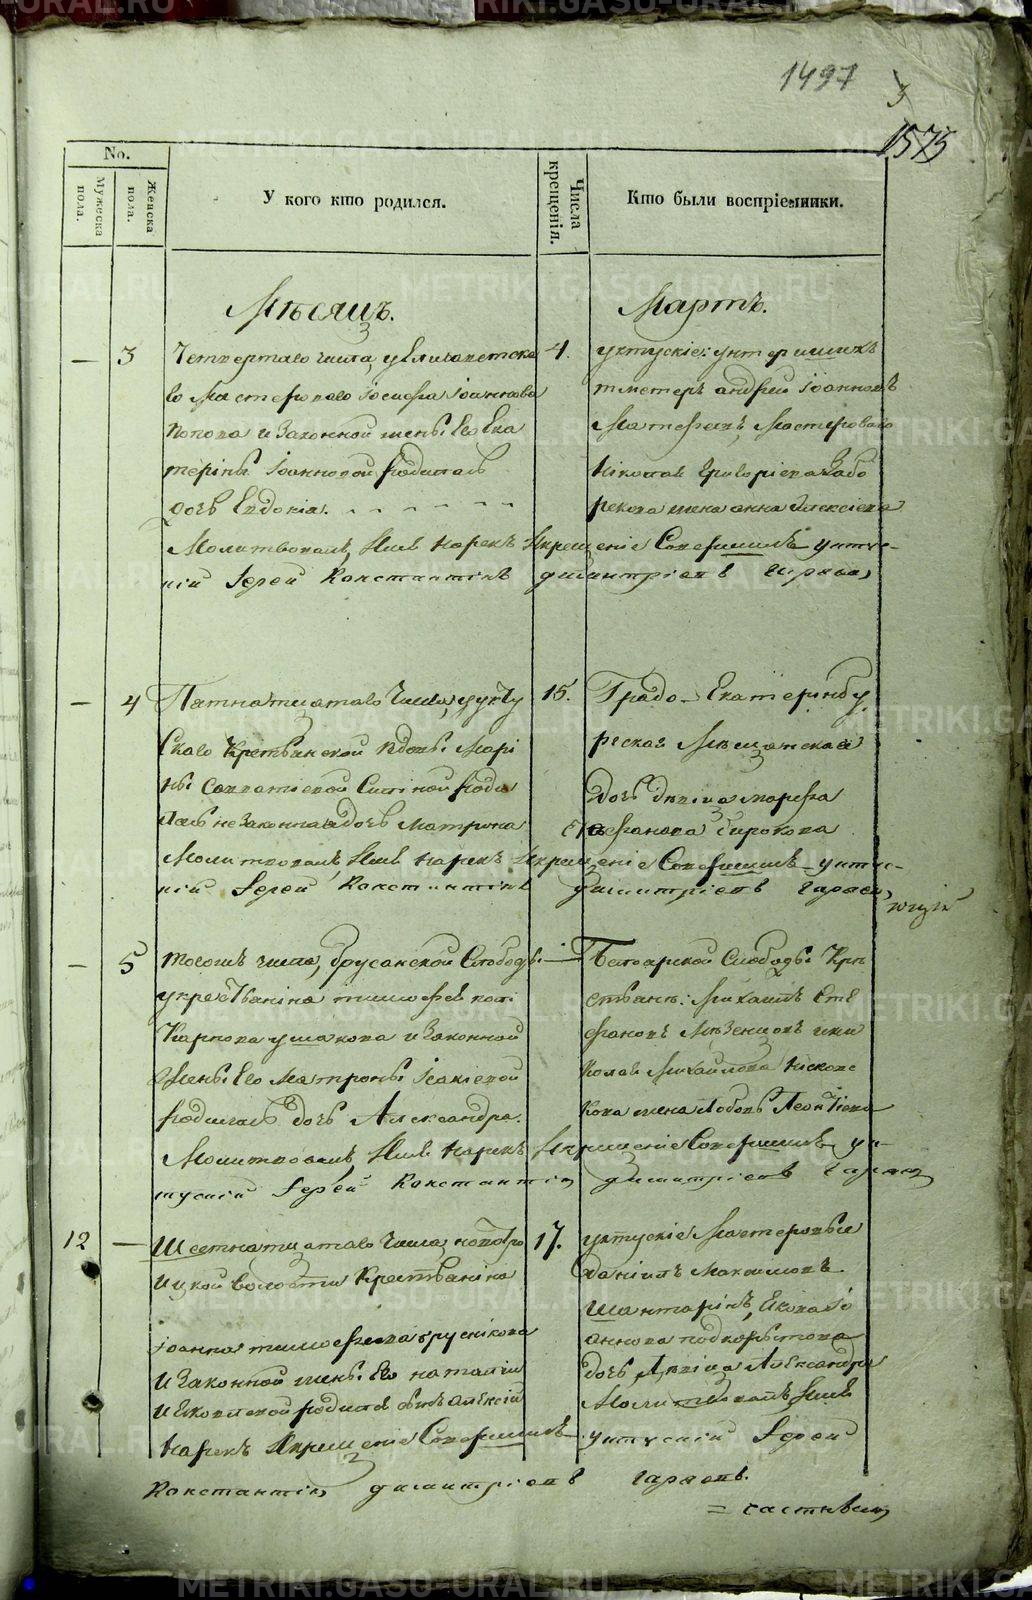 1497
3
1575
No.
Мужеска пола.
Женска пола.
У кого кто родился.
Числа крещенія.
Кто были воспріемники.
Мѣсяцъ.
Мартъ.
— 3 Четвертаго числа, у Елисаветска
го Мастероваго Іосифа Іоаннова
Попова и Законной жены Его Ека
терины Іоанновой родилась
дочь Евдокія.
4. уктускіе: унтер шихъ
тместеръ андрей Іоанновъ
Мастероваго
Николая Григоріева
рекова жена анна Алексіева
Молитвовалъ, Имя нарекъ Икрещеніе Совершилъ уктус-
кій Іерей Константинъ димитріевъ
— 4 Пятнатцатаго Числа, у укту
скаго Крестьянской вдовы Мари
ны Савватіевой роди
лась незаконная дочь Матрона
15. Градо-Екатеринбу
ргская Мѣщанская
дочь дѣвица марфа
Стефанова Широкова
Молитвовалъ, Имя нарекъ Икрещеніе Совершилъ уктус-
кій Іерей Константинъ димитріевъ
— 5 тогожъ числа, брусянской Слободы
у крестьянина тимофея
Карпова ушакова и Законной
жены Его Матроны Іакіевой
родилась дочь Александра.
— Белоярской Слободы Кре
стьяне: Михаилъ Сте
фановъ Мѣзенцовъ ини
колая Михайлова
кова жена Любовь Леонтіева
Молитвовалъ, Имя нарекъ Икрещеніе Совершилъ ук-
тускій Іерей Константинъ димитріевъ
12 — Шестнатцатаго Числа, новотро
ицкой волости Крестьянина
Іоанна тимофеева брусникова
и Законной жены Его наталіи
родился сынъ Алексій
17. уктускіе Мастеровые
даніилъ Максимовъ
Шантаринъ, Якова Іо
аннова подкорытова
дочь дѣвица Александра
Молитвовалъ, Имя
нарекъ Икрещеніе Совершилъ уктускій Іерей
Константинъ димитріевъ
METRIKI.GASO-URAL.RU